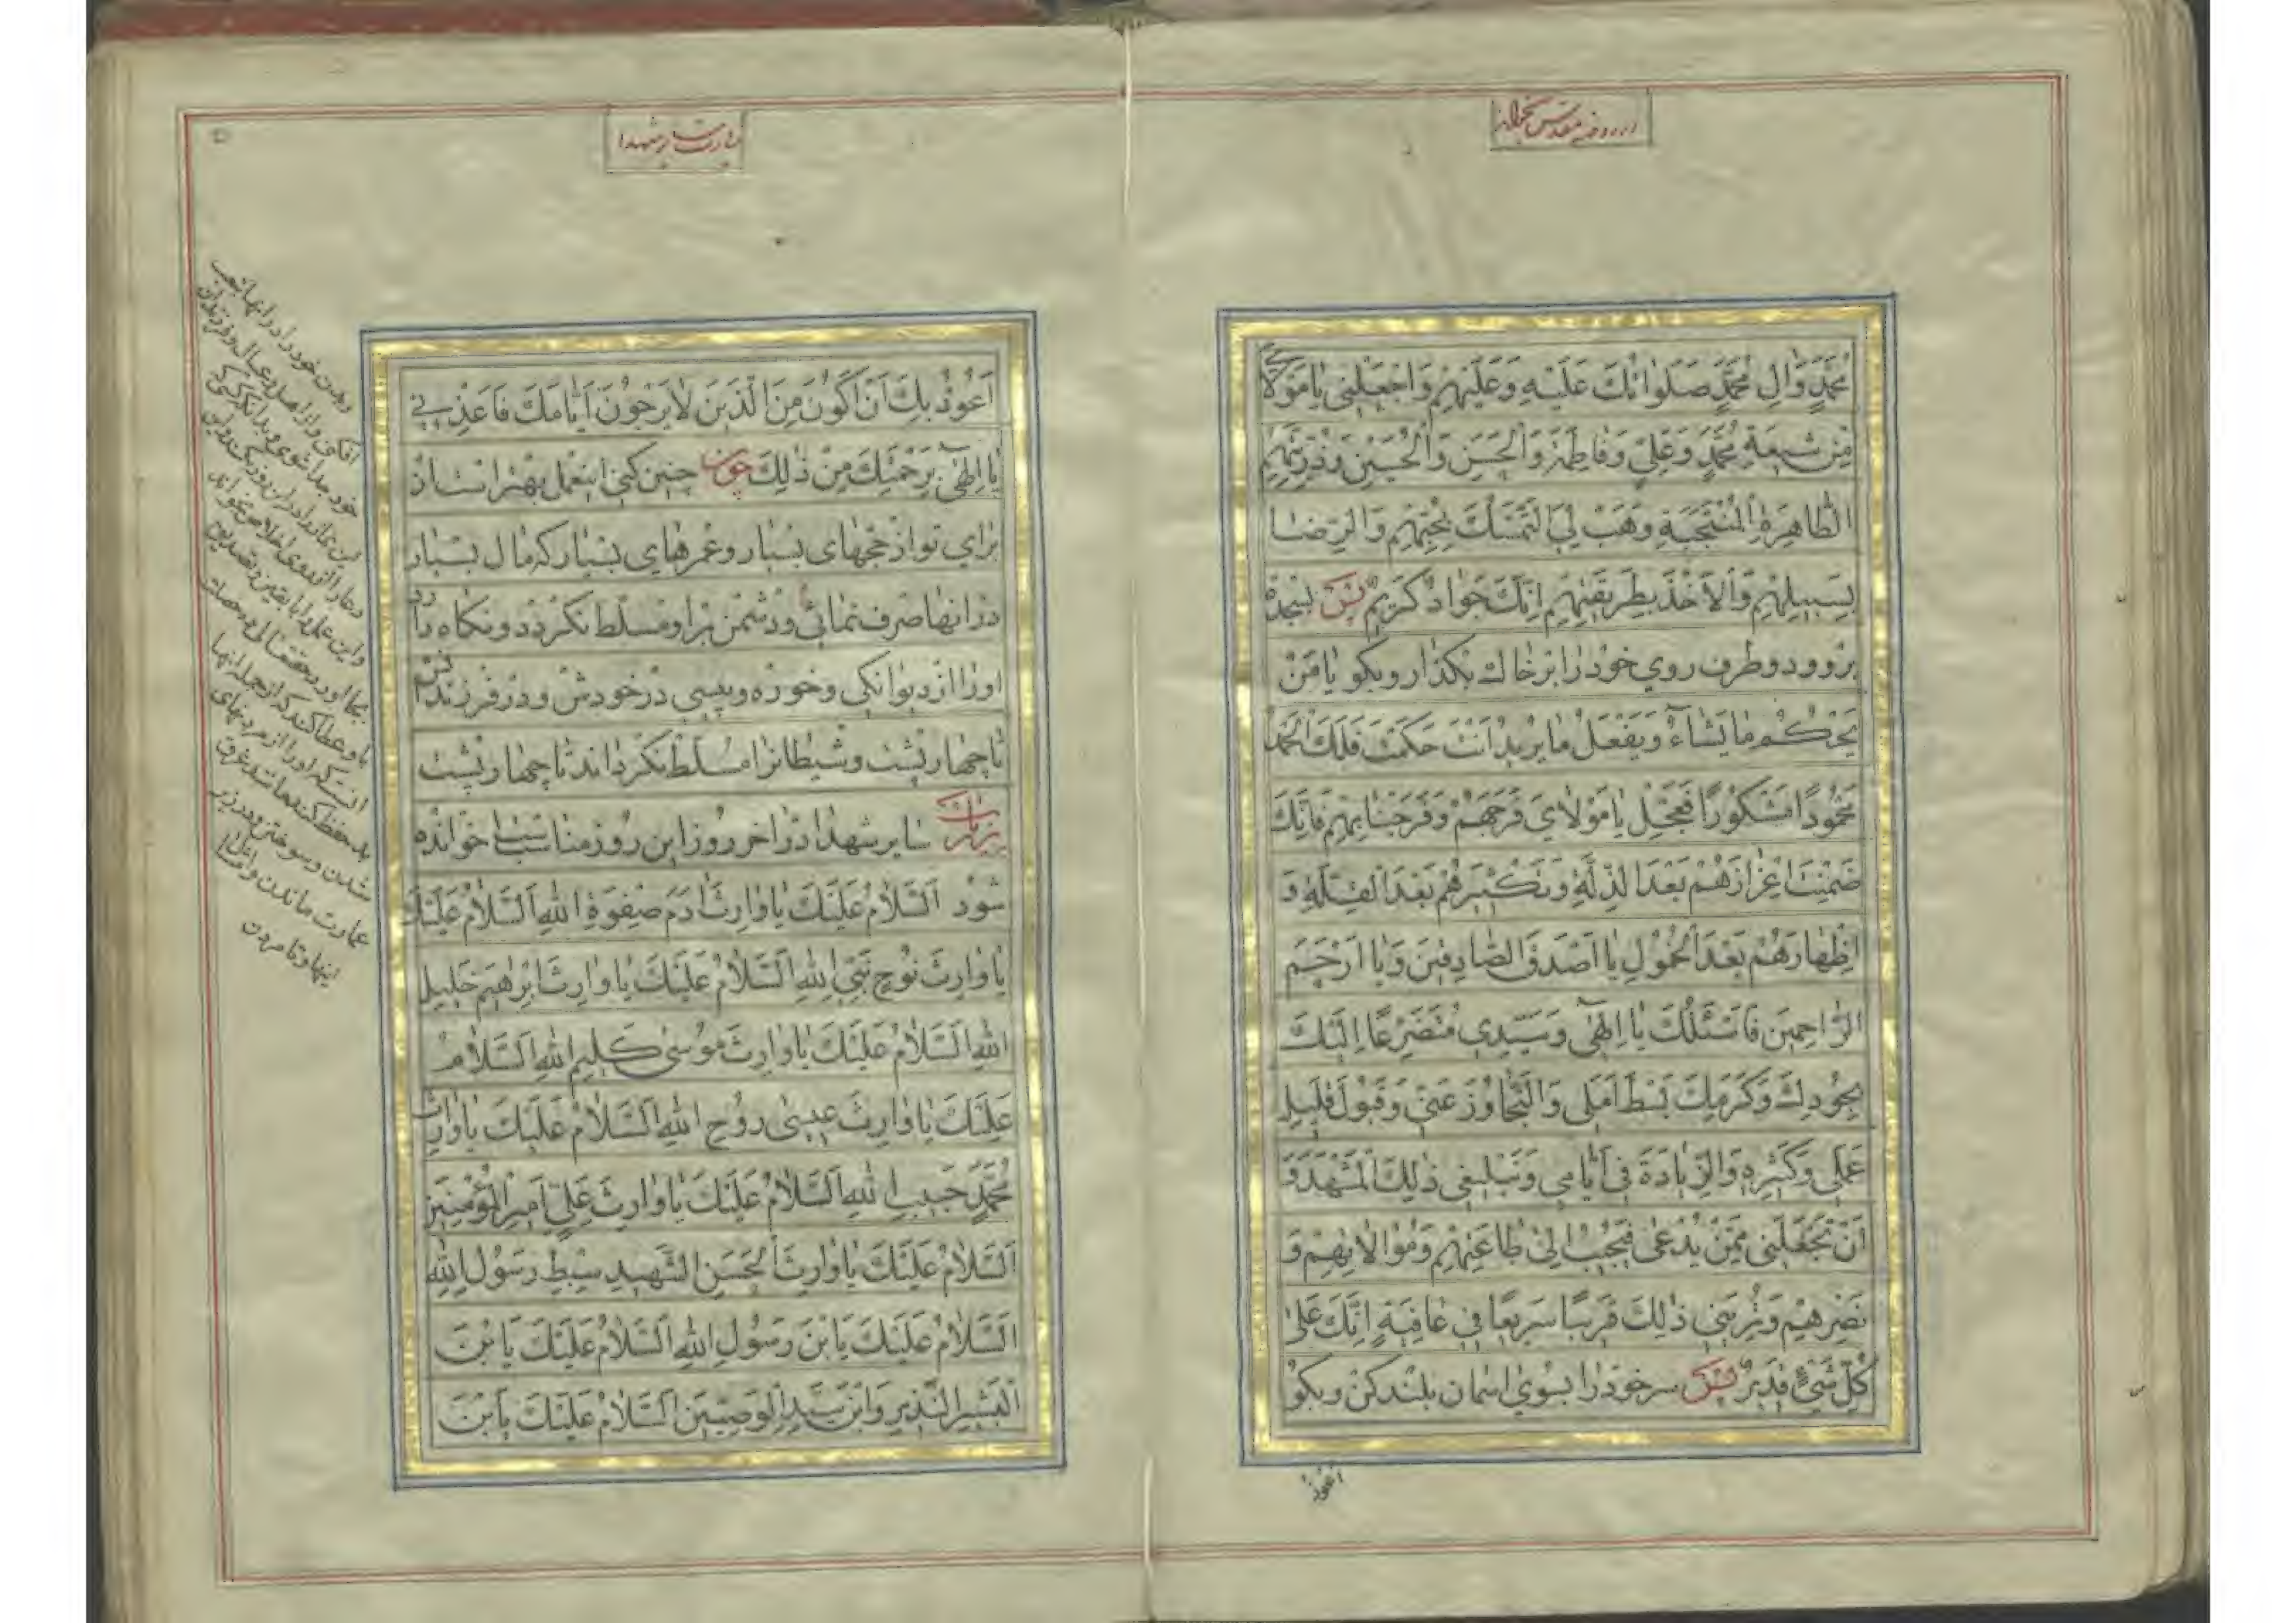 مُحَمَّدٍ وَالِ مُحَمَّدٍ صَلَوٰاتُكَ عَلَيْهِ وَعَلَيْهِمْ وَاجْعَلْنِي يٰا مَوْلٰايَ
مِنْ شيعَةِ مُحَمَّدٍ وَعَلِيٍّ وَفٰاطِمَةَ وَالْحَسَنِ وَالْحُسَيْنِ وَذُرِّيَّتِهِمُ
الطّٰاهِرَةِ الْمُنْتَجَبَةِ وَهَبْ لِيَ التَّمَسُّكَ بِحَبْلِهِمْ وَالرِّضٰا
بِسَبيلِهِمْ وَالْاَخْذَ بِطَريقَتِهِمْ اِنَّكَ جَوٰادٌ كَريمٌ پس بسجده
برو و دو طرف روي خود را بر خاك بگذار و بگو يٰا مَنْ
يَحْكُمُ مٰا يَشٰاءُ وَيَفْعَلُ مٰا يُريدُ اَنْتَ حَكَمْتَ فَلَكَ الْحَمْدُ
مَحْمُودًا مَشْكُورًا فَعَجِّلْ يٰا مَوْلٰايَ فَرَجَهُمْ وَفَرَجَنٰا بِهِمْ فَاِنَّكَ
ضَمِنْتَ اِعْزٰازَهُمْ بَعْدَ الذِّلَّةِ وَتَكْثيرَهُمْ بَعْدَ الْقِلَّةِ وَ
اِظْهٰارَهُمْ بَعْدَ الْخُمُولِ يٰا اَصْدَقَ الصّٰادِقينَ وَيٰا اَرْحَمَ
الرّٰاحِمينَ فَاَسْئَلُكَ يٰا اِلٰهي وَسَيِّدي مُتَضَرِّعًا اِلَيْكَ
بِجُودِكَ وَكَرَمِكَ بَسْطَ اَمَلي وَالتَّجٰاوُزَ عَنّي وَقَبُولَ قَليلِ
عَمَلي وَكَثيرِهِ وَالزِّيٰادَةَ في اَيّٰامي وَتَبْليغي ذٰلِكَ الْمَشْهَدَ وَ
اَنْ تَجْعَلَني مِمَّنْ يُدْعىٰ فَيُجيبُ اِلىٰ طٰاعَتِهِمْ وَمُوٰالٰاتِهِمْ وَ
نَصْرِهِمْ وَتُرِيَني ذٰلِكَ قَريبًا سَريعًا في عٰافِيَةٍ اِنَّكَ عَلىٰ
كُلِّ شَيْءٍ قَديرٌ پس سر خود را بسوي اسمان بلند كن و بگو
اعوذ
زيارت ساير شهدا
اَعُوذُ بِكَ اَنْ اَكُونَ مِنَ الَّذينَ لٰا يَرْجُونَ اَيّٰامَكَ فَاَعِذْني
يٰا اِلٰهي بِرَحْمَتِكَ مِنْ ذٰلِكَ چون چنين كني اينعمل بهتر است از
براي تو از حجهاي بسيار و عمرهاي بسيار كه مال بسيار
در انها صرف نمائي و دشمن بر او مسلط نكردد و نكاه دارد
او را از ديوانكي و خوره و پيسي در خودش و در فرزندانش
تا چهار پشت و شيطانرا مسلط نكرداند تا چهار پشت
زيارت ساير شهدا در اخر روز اين روز مناسب است خوانده
شود اَلسَّلٰامُ عَلَيْكَ يٰا وٰارِثَ اٰدَمَ صِفْوَةِ اللهِ اَلسَّلٰامُ عَلَيْكَ
يٰا وٰارِثَ نُوحٍ نَبِيِّ اللهِ اَلسَّلٰامُ عَلَيْكَ يٰا وٰارِثَ اِبْرٰهيمَ خَليلِ
اللهِ اَلسَّلٰامُ عَلَيْكَ يٰا وٰارِثَ مُوسىٰ كَليمِ اللهِ اَلسَّلٰامُ
عَلَيْكَ يٰا وٰارِثَ عيسىٰ رُوحِ اللهِ اَلسَّلٰامُ عَلَيْكَ يٰا وٰارِثَ
مُحَمَّدٍ حَبيبِ اللهِ اَلسَّلٰامُ عَلَيْكَ يٰا وٰارِثَ عَلِيٍّ اَميرِ الْمُؤْمِنينَ
اَلسَّلٰامُ عَلَيْكَ يٰا وٰارِثَ الْحَسَنِ الشَّهيدِ سِبْطِ رَسُولِ اللهِ
اَلسَّلٰامُ عَلَيْكَ يَا بْنَ رَسُولِ اللهِ اَلسَّلٰامُ عَلَيْكَ يَا بْنَ
الْبَشيرِ النَّذيرِ وَابْنَ سَيِّدِ الْوَصِيّينَ اَلسَّلٰامُ عَلَيْكَ يَا بْنَ
خود جدا شوي و بدانكه كسي كه
اين نماز را در اين روز بكند و اين
دعا را از روي اخلاص بخواند
و اين عمل را با يقين و تصديق
بجا اورد حقتعالي ده خصلت
باو عطا كند كه از جمله انها
انستكه او را از مردنهاي
بد حفظ كند مانند غرق
شدن و سوختن و در زير
عمارت ماندن و امثال
اينها و تا مردن